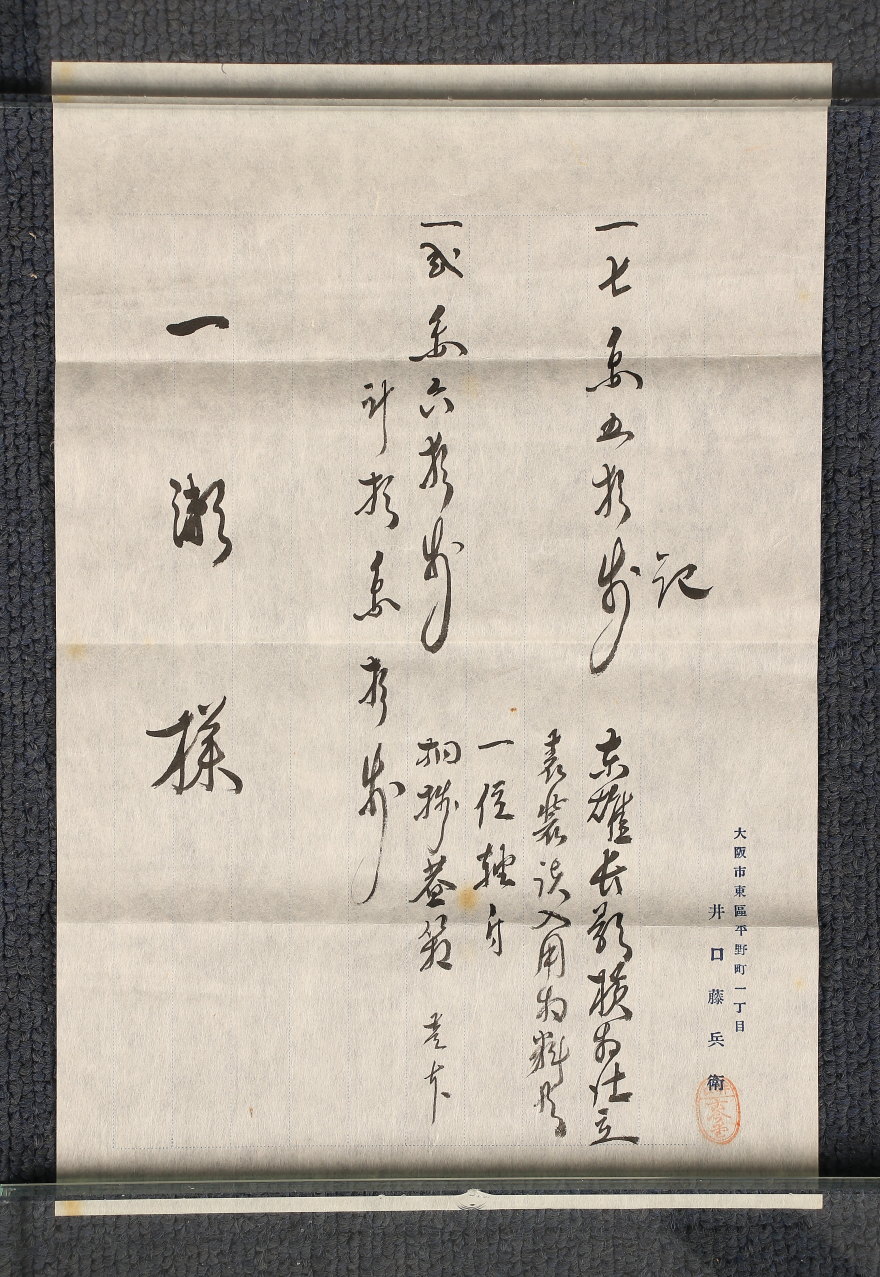 大阪市東區平野町一丁目
井口藤兵衛
記
一七円五拾銭
東雄長歌横物仕立
表装誂入用物料共
一弐円六拾銭
一位軸身
桐掛蓋箱 壱下
計拾円拾銭
一瀬様